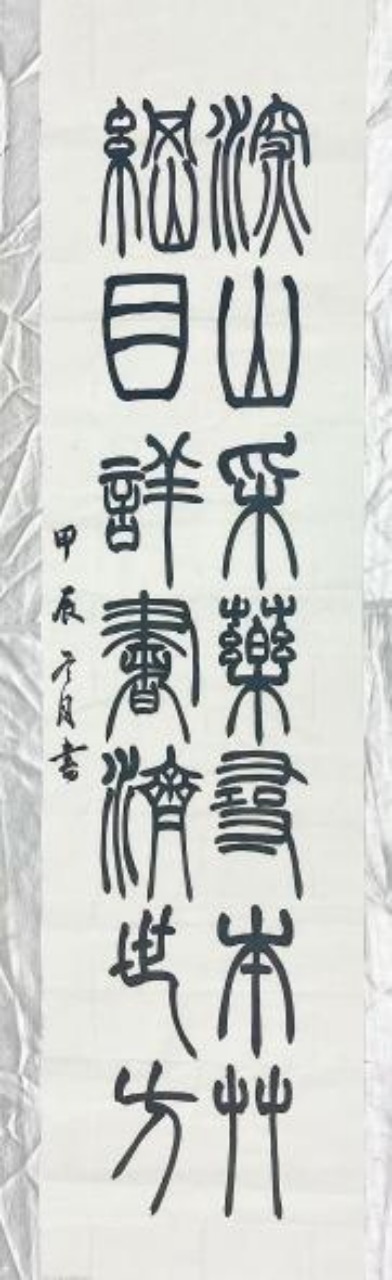 深山采藥尋本艸
綱目詳書濟世方
甲辰年月書